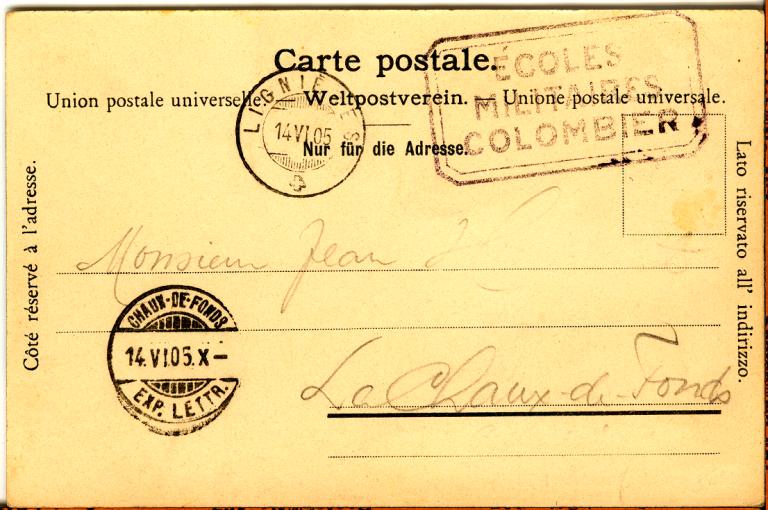 Carte postale.
ÉCOLES
MILITAIRES
COLOMBIER
Union postale universelle. — Weltpostverein. — Unione postale universale.
Nur für die Adresse.
LIGNIÈRES
14 VI.05
Côté réservé à l'adresse.
Lato riservato all' indirizzo.
Monsieur Jean
CHAUX-DE-FONDS
14.VI.05.X—
EXP. LETTR.
La Chaux-de-Fonds